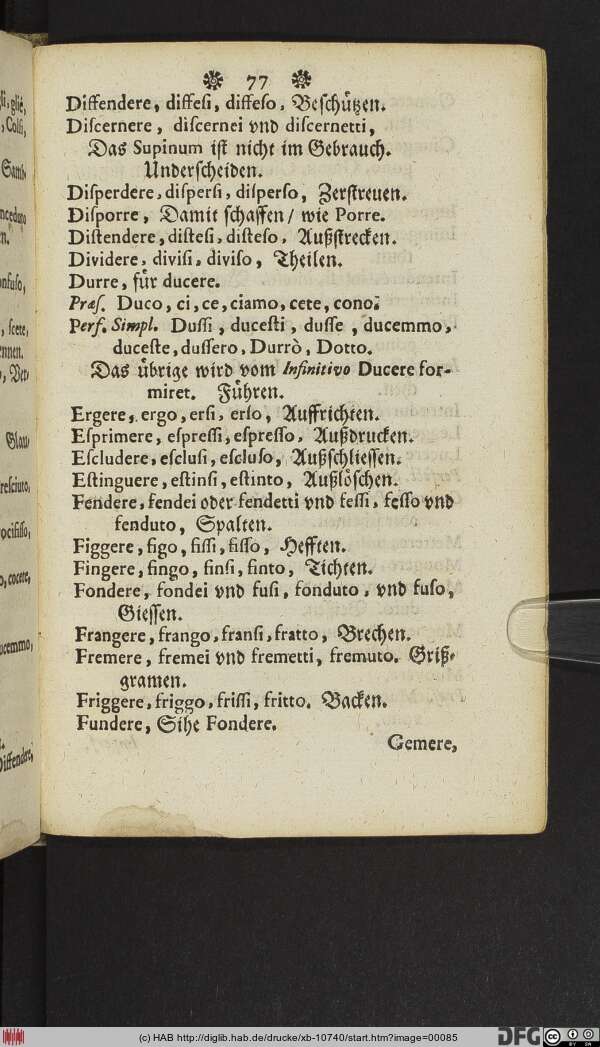 77
Diffendere, diffesi, diffeso, Beschützen.
Discernere, discernei vnd discernetti,
Das Supinum ist nicht im Gebrauch.
Underscheiden.
Disperdere, dispersi, disperso, Zerstreuen.
Disporre, Damit schaffen / wie Porre.
Distendere, distesi, disteso, Außstrecken.
Dividere, divisi, diviso, Theilen.
Durre, für ducere.
Præs. Duco, ci, ce, ciamo, cete, cono.
Perf. Simpl. Dussi, ducesti, dusse, ducemmo,
duceste, dussero, Durrò, Dotto.
Das übrige wird vom Infinitivo Ducere for-
miret. Führen.
Ergere, ergo, ersi, erso, Auffrichten.
Esprimere, espressi, espresso, Außdrucken.
Escludere, esclusi, escluso, Außschliessen.
Estinguere, estinsi, estinto, Außlöschen.
Fendere, fendei oder fendetti vnd fessi, fesso vnd
fenduto, Spalten.
Figgere, figo, fissi, fisso, Hefften.
Fingere, fingo, finsi, finto, Tichten.
Fondere, fondei vnd fusi, fonduto, vnd fuso,
Giessen.
Frangere, frango, fransi, fratto, Brechen.
Fremere, fremei vnd fremetti, fremuto. Griß-
gramen.
Friggere, friggo, frissi, fritto. Backen.
Fundere, Sihe Fondere.
Gemere,
(c) HAB http://diglib.hab.de/drucke/xb-10740/start.htm?image=00085
DFG